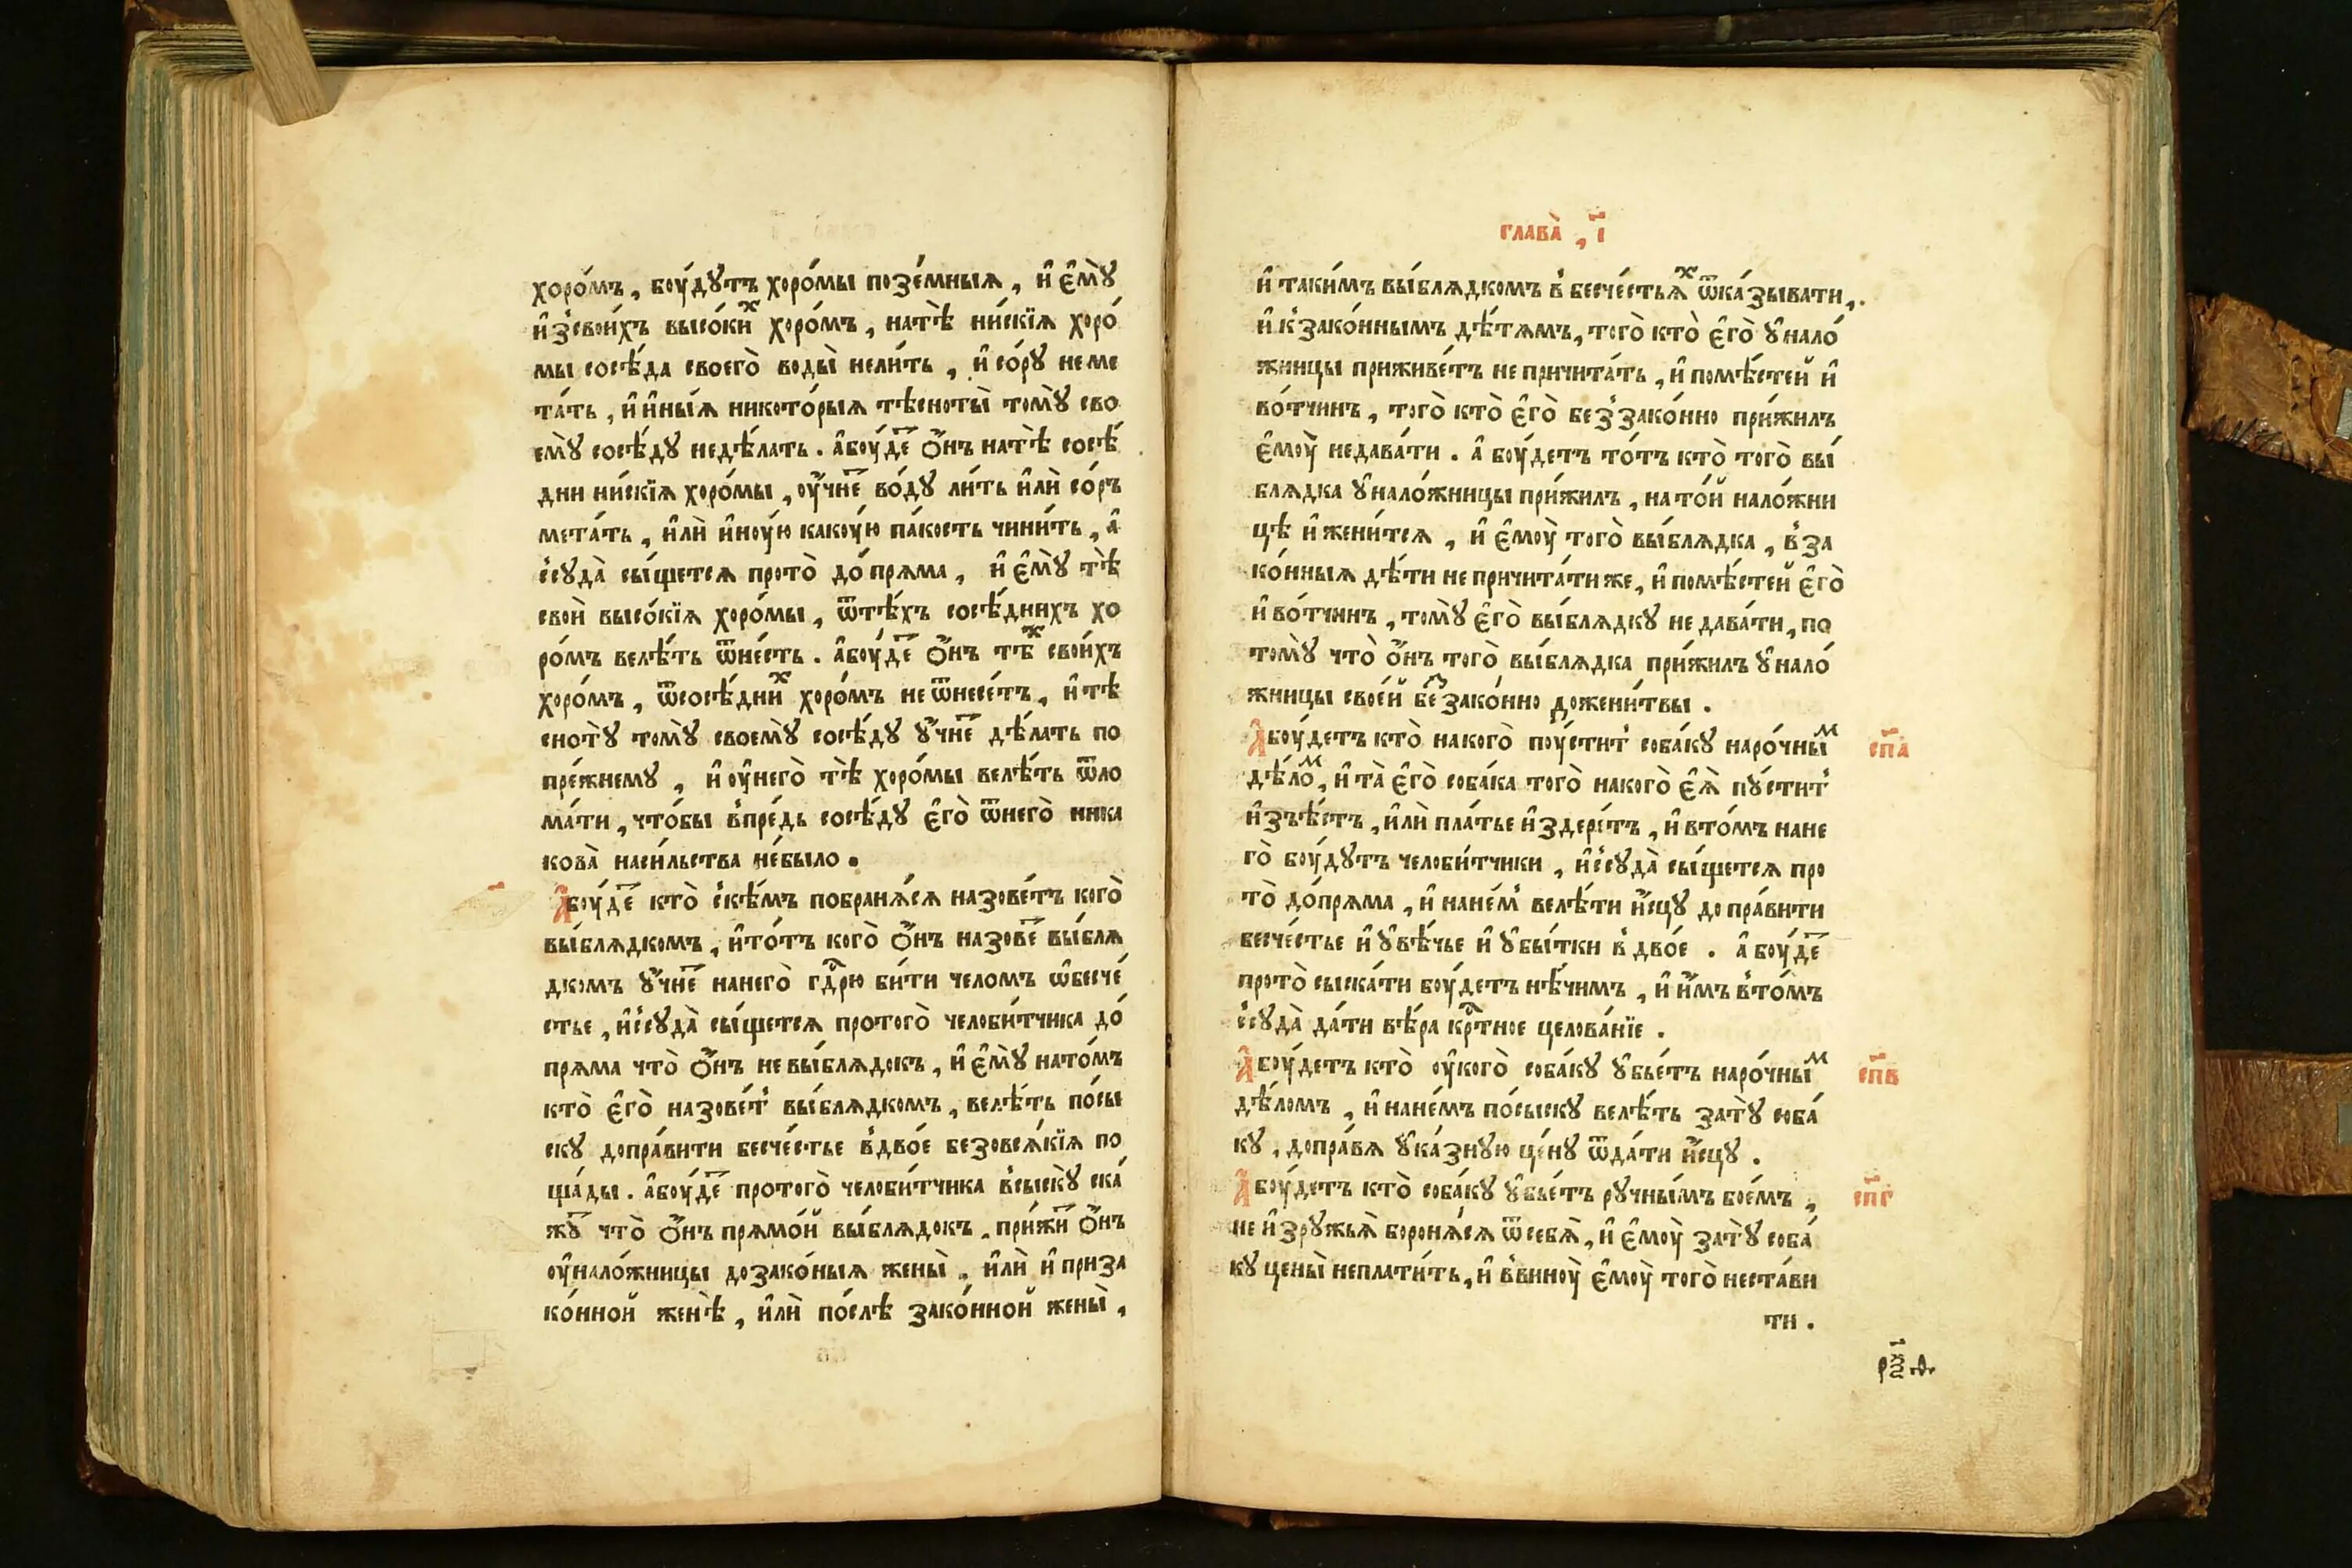 хоро́мъ, боу́дꙋтъ хоро́мы позе́мныѧ, и҆ є҆мꙋ̀
и҆з̾свои́хъ высо́ки́ⷯ хоро́мъ, натѣ̀ ни́скїѧ хоро́
мы сосѣ́да своего̀ воды̀ нели́ть, и҆ со́рꙋ неме
та́ть, и҆ и҆ны́ѧ никото́рыѧ тѣсноты̀ томꙋ̀ сво
емꙋ̀ сосѣ́дꙋ недѣ́лать. а҆боу́деⷮ ѻ҆́нъ натѣ̀ сосѣ́
дни ни́скїѧ хоро́мы, оу҆чнеⷮ во́дꙋ ли́ть и҆лѝ со́ръ
мета́ть, и҆лѝ и҆ноу́ю какоу́ю па́кость чини́ть, а҆
с̾сꙋда̀ сы́щетсѧ прото̀ до́прѧма, и҆ є҆мꙋ̀ тѣ̀
своѝ высо́кїѧ хоро́мы, ѿтѣ́хъ сосѣ́днихъ хо
ро́мъ велѣ́ть ѿне́сть. а҆боу́деⷮ ѻ҆́нъ тѣⷯ свои́хъ
хоро́мъ, ѿсосѣ́дниⷯ хоро́мъ не ѿнесе́тъ, и҆ тѣ
снотꙋ̀ томꙋ̀ своемꙋ̀ сосѣ́дꙋ ꙋ҆чнеⷮ дѣ́лать по
пре́жнемꙋ, и҆ оу҆него̀ тѣ̀ хоро́мы велѣ́ть ѿло
ма́ти, что́бы в̾пре́дь сосѣ́дꙋ є҆го̀ ѿнего̀ ника
кова̀ наси́льства не́было.
А҆боу́деⷮ кто̀ с̾кѣ́мъ побранѧ́сѧ назове́тъ кого̀
вы́блѧдкомъ, и҆то́тъ кого̀ ѻ҆́нъ назовеⷮ вы́блѧ
дкомъ ꙋ҆чнеⷮ нанего̀ гдⷭ҇рю би́ти челомъ ѡ҆бесче́
стье, и҆с̾сꙋда̀ сы́щетсѧ протого̀ челоби́тчика до́
прѧма что̀ ѻ҆́нъ не вы́блѧдокъ, и҆ є҆мꙋ̀ нато́мъ
кто̀ є҆го̀ назове́т̾ вы́блѧдкомъ, велѣ́ть по́сы
скꙋ допра́вити бесче́стье в̾дво́е безовсѧ́кїѧ по
ща́ды. а҆боу́деⷮ протого̀ челоби́тчика в̾сыскꙋ̀ ска́
жꙋⷮ что̀ ѻ҆́нъ прѧмо́й вы́блѧдокъ, при́жиⷧ ѻ҆́нъ
оу҆нало́жницы дозако́ныѧ жены̀, и҆лѝ и҆ приза
ко́нной женѣ̀, и҆лѝ по́слѣ зако́нной жены̀,
глава̀, і҃
и҆ таки́мъ вы́блѧдкомъ в̾ бесче́стьѧⷯ ѿка́зывати,
и҆ к̾зако́ннымъ дѣ́тѧмъ, того̀ кто̀ є҆го̀ ꙋ҆нало́
жницы приживе́тъ не причита́ть, и҆ помѣ́стей и҆
во́тчинъ, того̀ кто̀ є҆го̀ без̾зако́нно при́жилъ
є҆моу̀ недава́ти. а҆ боу́детъ то́тъ кто̀ того̀ вы́
блѧдка ꙋ҆нало́жницы при́жилъ, на то́й нало́жни
цѣ и҆ жени́тсѧ, и҆ є҆моу̀ того̀ вы́блѧдка, в̾за
ко́нныѧ дѣ́ти не причита́ти же, и҆ помѣ́стей є҆го̀
и҆ во́тчинъ, томꙋ̀ є҆го̀ вы́блѧдкꙋ не дава́ти, по
томꙋ̀ что̀ ѻ҆́нъ того̀ вы́блѧдка при́жилъ ꙋ҆нало́
жницы свое́й беⷥзако́нно дожени́твы.
А҆боу́детъ кто̀ накого̀ поу́стит̾ соба́кꙋ наро́чныⷨ
сп҃а
дѣ́лоⷨ, и҆ та̀ є҆го̀ соба́ка того̀ накого̀ є҆ѧ̀ пꙋ́стит̾
и҆зъѣ́стъ, и҆лѝ пла́тье и҆здере́тъ, и҆ вто́мъ нане
го̀ боу́дꙋтъ челоби́тчики, и҆с̾сꙋда̀ сы́щетсѧ про
то̀ до́прѧма, и҆ нане́м̾ велѣ́ти и҆сцꙋ̀ допра́вити
бесче́стье и҆ ꙋ҆вѣ́чье и҆ ꙋ҆бы́тки в̾дво́е. а҆ боу́деⷮ
прото̀ сыска́ти боу́детъ нѣ́чимъ, и҆ и҆̀мъ в̾то́мъ
с̾сꙋда̀ да́ти вѣ́ра крⷭ҇тное целова́нїе.
А҆боу́детъ кто̀ оу҆кого̀ соба́кꙋ ꙋ҆бье́тъ наро́чныⷨ
сп҃в
дѣ́ломъ, и҆ нане́мъ по́сыскꙋ велѣ́ть затꙋ̀ соба́
кꙋ, допра́вѧ ꙋ҆ка́знꙋю це́нꙋ ѿда́ти и҆сцꙋ̀.
А҆боу́детъ кто̀ соба́кꙋ ꙋ҆бье́тъ рꙋчны́мъ бое́мъ,
сп҃г
не и҆зрꙋжьѧ̀ боронѧ́сѧ ѿсебѧ̀, и҆ є҆моу̀ затꙋ̀ соба́
кꙋ цены̀ неплати́ть, и҆ в̾виноу̀ є҆моу̀ того̀ неста́ви
ти.
рѯ҃ѳ